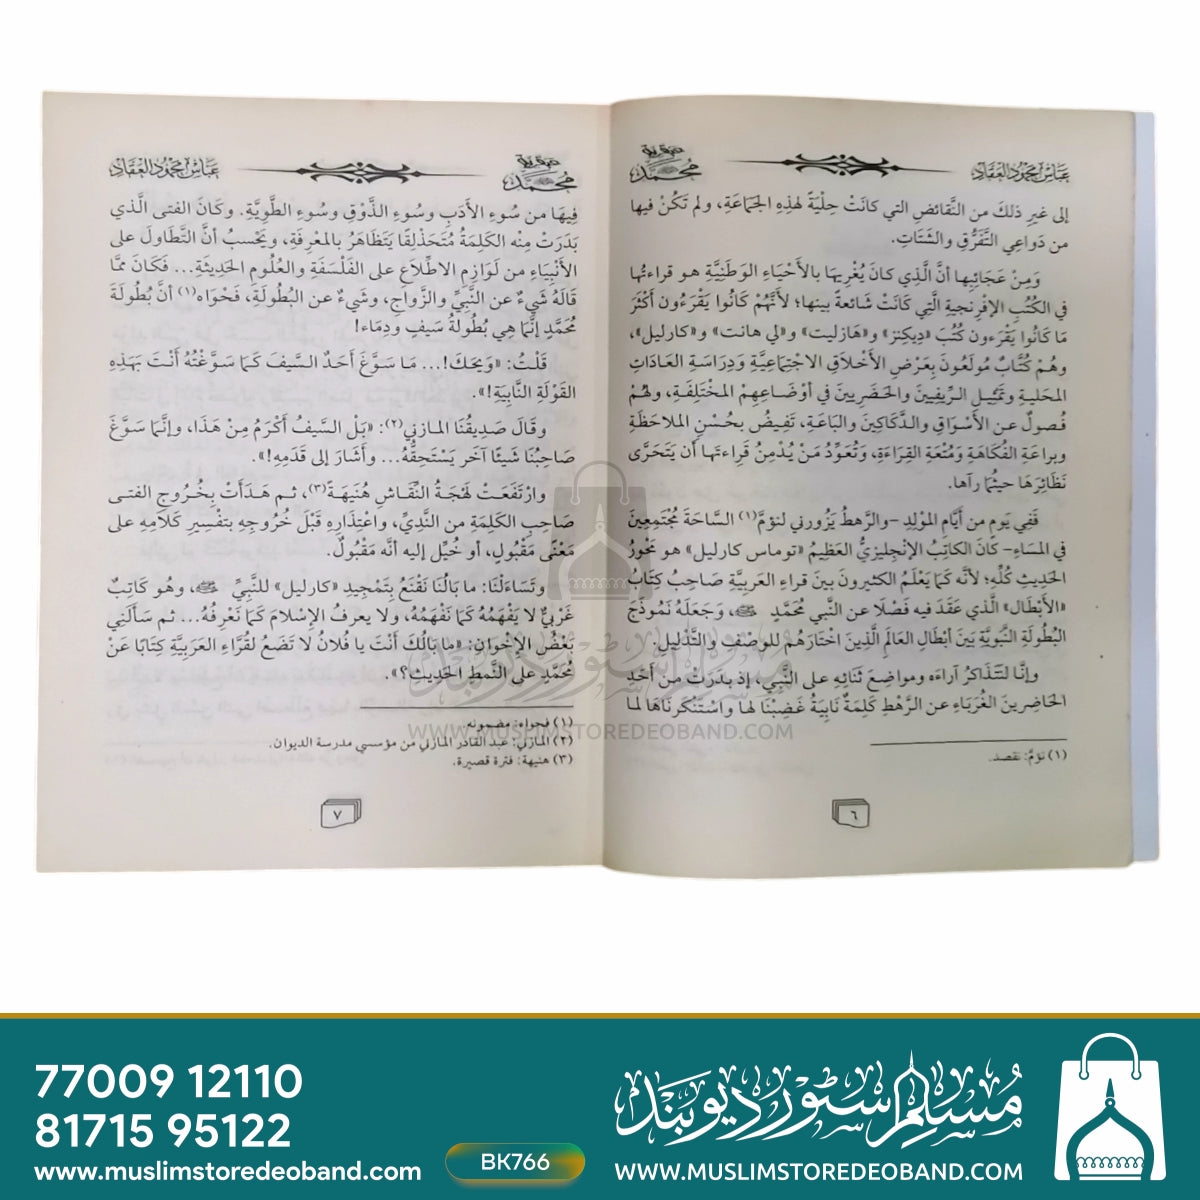 عباس محمود العقاد
عبقرية محمد ﷺ
إلى غيرِ ذلكَ من النَّقائضِ التي كانَتْ حِلْيَةً لهذِهِ الجَمَاعَةِ، ولم تَكُنْ فيها
من دَواعِي التَّفَرُّقِ والشَّتَاتِ.
وَمِنْ عَجَائِبِها أنَّ الَّذِي كانَ يُغْرِيهَا بالأَحْيَاءِ الوَطَنِيَّةِ هـو قراءتُها
في الكُتُبِ الإفْرنجيةِ الَّتِي كَانَتْ شائعةً بينها؛ لأَنَّهُمْ كَانُوا يَقْرَءون أكْثَرَ
مَا كَانُوا يَقْرَءون كُتُبَ «دِيكِنز» و«هَازليت» و«لي هانت» و«كارليل»،
وهُمْ كُتَّابٌ مُولَعُون بِعَرْضِ الأَخْلاقِ الاجْتِماعِيَّةِ وَدِرَاسَةِ العَادَاتِ
المَحَليةِ وتَمَثُّلِ الرِّيفِيينَ والحَضَرِيينَ في أوْضَاعِهِمْ المخْتَلِفَةِ، ولهُمْ
فُصولٌ عـن الأَسْوَاقِ والدَّكَاكِينَ والبَاعَةِ، تَفِيضُ بحُسْنِ الملاحَظَةِ
وبراعَةِ الفُكَاهَةِ ومُتْعَةِ القِرَاءَةِ، وتُعَوِّدُ مَنْ يُدْمِنُ قَرِاءتَها أن يَتَحَرَّى
نَظَائِرَهَا حيثُما رآها.
فَفِي يَومٍ من أيَّامِ المَوْلِدِ -والرَّهطُ يَزُورني لنؤمَّ(١) السَّاحَةَ مُجْتَمِعِينَ
في المسَاءِ- كَانَ الكاتِبُ الإنْجِليزيُّ العَظيمُ «توماس كارليل» هو مَحْورُ
الحَدِيثِ كُلِّه؛ لأنَّه كَمَا يَعْلَمُ الكثيرونَ بينَ قراءِ العَربيَّةِ صَاحِبُ كِتَابُ
«الأَبْطَالِ» الَّذي عَقَدَ فيه فَصْلًا عن النَّبي مُحَمَّدٍ ﷺ، وَجَعَلَهُ نَمُوذَجَ
البُطُولَةِ النَّبَوِيَّةِ بَيْنَ أبْطَالِ العَالمِ الَّذِينَ اخْتَارَهُم للوصْفِ والتَّدْليلِ.
وإنَّا لنتَذَاكَرُ آرَاءَه ومواضِعَ ثَنَائِهِ على النَّبِي، إذ بدَرَتْ مـن أَحَدِ
الحَاضِرِينَ الغُرَبَاءِ عن الرَّهْطِ كَلِمَةٌ نَابيةٌ غَضِبْنَا لها واسْتَنْكَرنَاهَا لما
(١) نؤمّ: نقصد.
٦
عبقرية محمد ﷺ
عباس محمود العقاد
فِيهَا من سُوءِ الأَدَبِ وسُوءِ الذَّوْقِ وسُوءِ الطَّوِيَّةِ. وكَانَ الفتى الَّذي
بَدَرَتْ مِنْه الكَلِمَةُ مُتَحَذْلِقًا يَتَظَاهَرُ بالمَعْرِفَةِ، ويَحْسبُ أنَّ التَّطَاولَ على
الأَنْبِيَاءِ من لَوَازِمِ الاطِّلَاعِ على الفَلْسَفَةِ والعُلُومِ الحَدِيثَةِ... فَكَانَ ممَّا
قَالَهُ شَيءٌ عن النَّبِيِّ والزَّواجِ، وشَيءٌ عن البُطُولَةِ، فَحْوَاه(١) أنَّ بُطُولَةَ
مُحَمَّدٍ إنَّمَا هِي بُطُولَةُ سَيفٍ ودِمَاء!
قُلْتُ: «وَيْحَكَ!... مَا سَوَّغَ أَحَدٌ السَّيفَ كَمَا سَوَّغْتُهُ أنْتَ بَهَذِهِ
القَوْلَةِ النَّابِيَةِ!».
وقَالَ صَدِيقُنَا المازني(٢): «بَلْ السَّيفُ أكْرَمُ مِنْ هَذَا، وإنَّمَا سَوَّغَ
صَاحِبُنَا شَيئًا آخَر يَسْتَحِقُّه... وأَشَارَ إلى قَدَمِه!».
وارْتَفَعَتْ لَهْجَةُ النِّقَاشِ هُنَيهَةً(٣)، ثم هَدَأَتْ بِخُروجِ الفتى
صَاحِبِ الكَلِمَةِ من النَّديِّ، واعْتِذَارِه قَبْلَ خُرُوجِهِ بِتَفْسِيرِ كَلَامِه على
مَعْنًى مَقْبُولٍ، أو خُيِّل إليه أنَّه مَقْبُولٌ.
وتَسَاءَلْنَا: ما بَالُنَا نَقْنَعُ بتَمْجِيدِ «كارليل» للنَّبِيِّ ﷺ، وهُو كَاتِبٌ
غَرْبيٌّ لا يَفْهَمُهُ كَمَا نَفْهَمُهُ، ولا يعرفُ الإسْلامَ كَمَا نَعْرِفُهُ... ثم سألَني
بَعْضُ الإخْوانِ: «ما بَالُكَ أنْتَ يا فُلانُ لا تَضَعُ لقُرَّاءِ العَرَبيَّةِ كِتَابًا عَنْ
مُحَمَّدٍ على النَّمطِ الحَدِيثِ؟».
(١) فحواه: مضمونه.
(٢) المازني: عبد القادر المازني من مؤسسي مدرسة الديوان.
(٣) هنيهة: فترة قصيرة.
٧
مسلم سٹور دیوبند
WWW.MUSLIMSTOREDEOBAND.COM
77009 12110
81715 95122
www.muslimstoredeoband.com
BK766
مسلم سٹور دیوبند
WWW.MUSLIMSTOREDEOBAND.COM